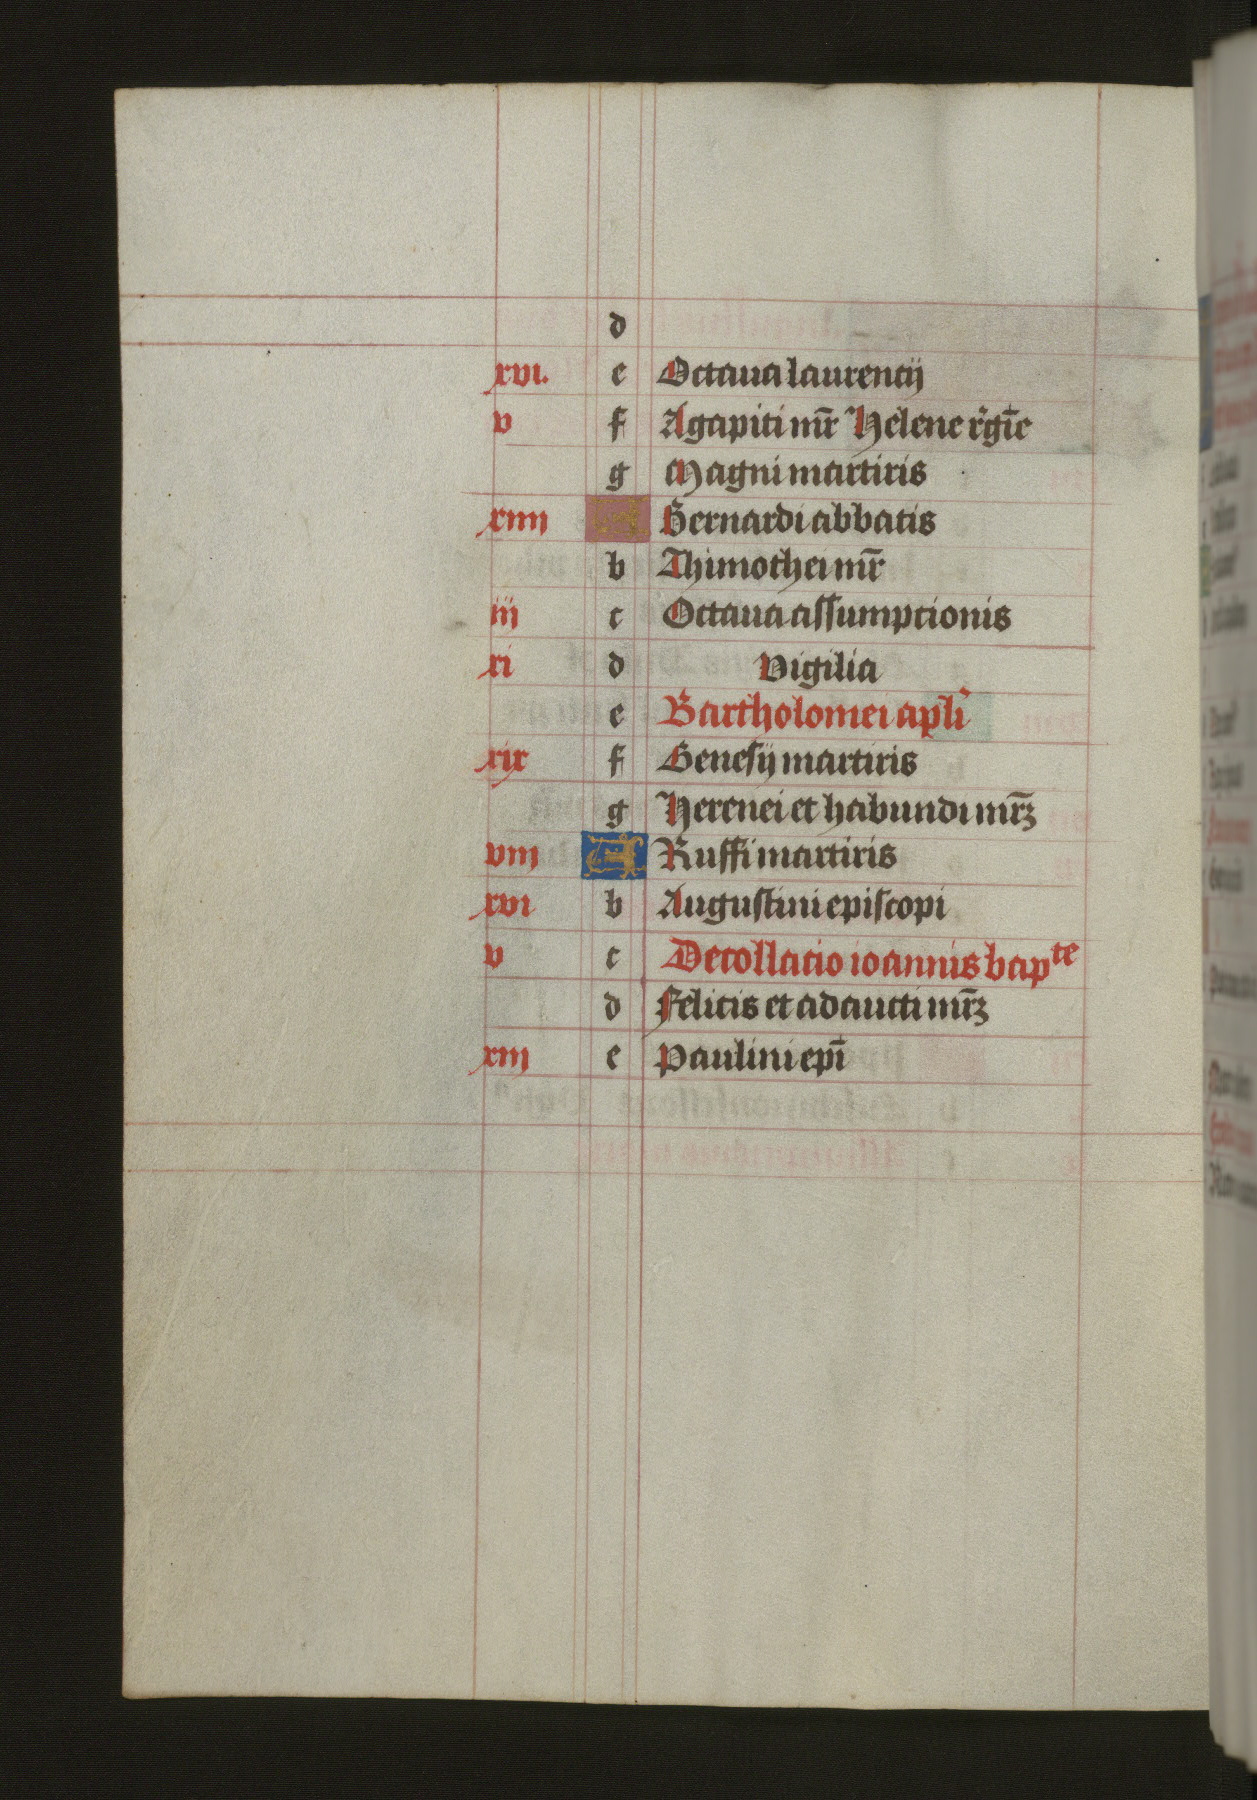 d
xvi. e Octaua laurencij
v f Agapiti mr̄ Helene rḡie
g Magni martiris
xiiij A Bernardi abbatis
b Thimothei mr̄
iij c Octaua assumptionis
xi d Vigilia
e Bartholomei apli
xix f Genesij martiris
g Herenei et habundi mr̄ꝫ
viij A Ruffi martiris
xvi b Augustini episcopi
v c Decollacio ioannis bapte
d Felicis et adaucti mr̄ꝫ
xiij e Paulini epī